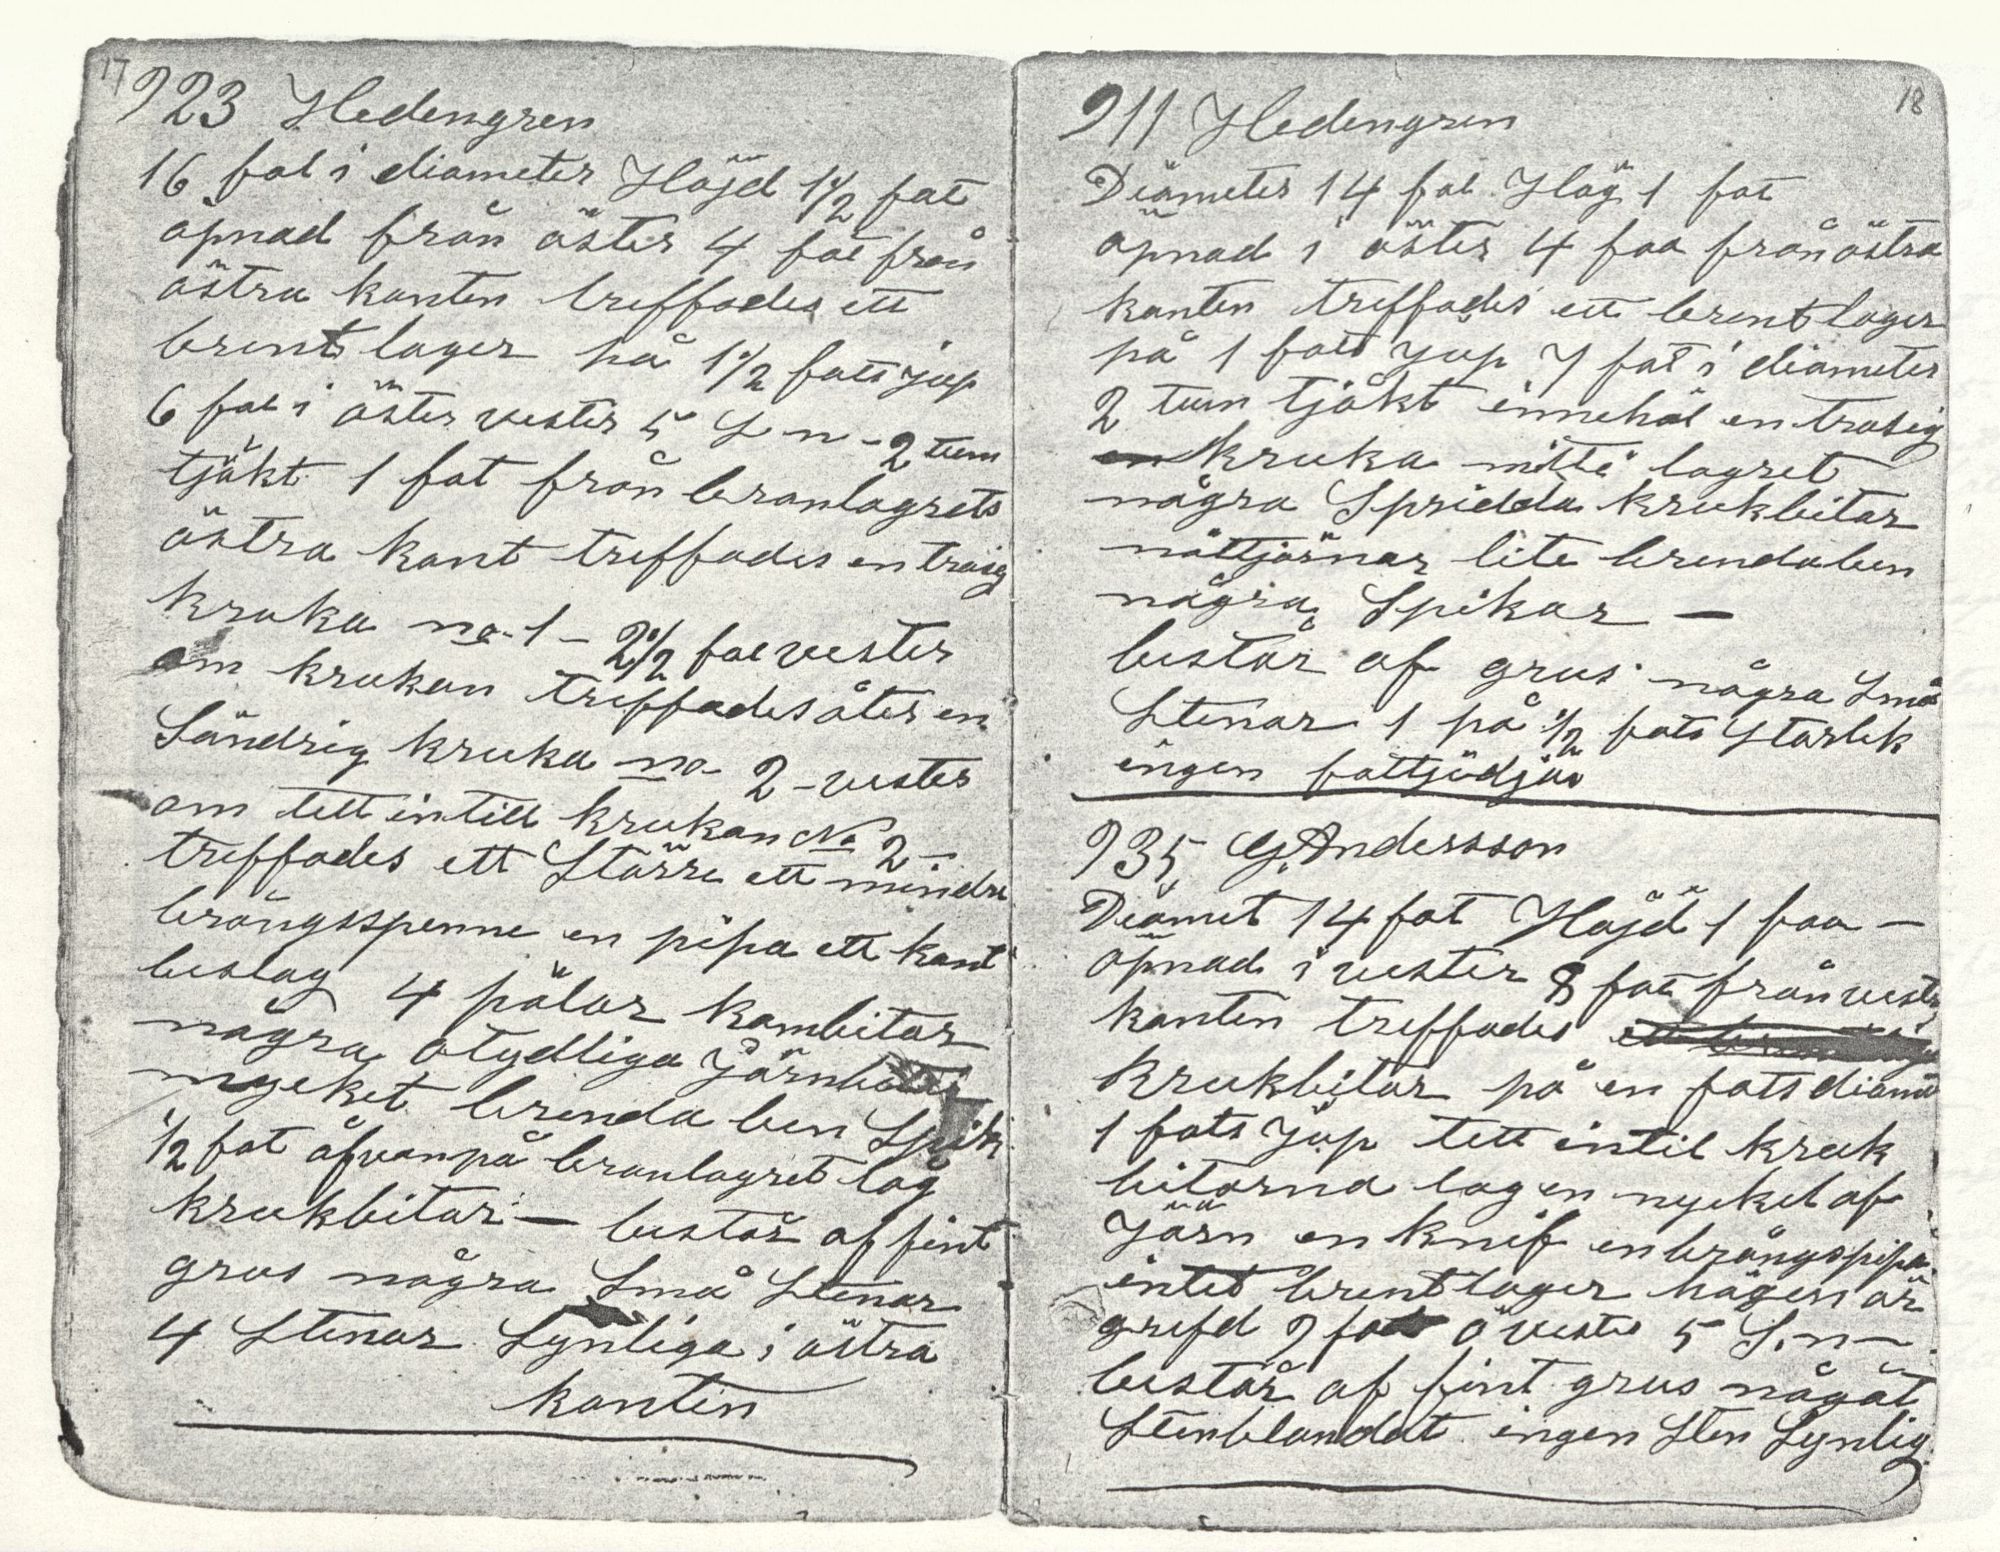 17
923 Hedengren
16 fot i diameter Höjd 1 1/2 fot
öpnad från öster 4 fot från
östra kanten treffades ett
brentlager på 1 1/2 fots jup
6 fot i öster vester 5 S-n- 2 tum
tjökt 1 fot från branlagrets
östra kant treffades en trasig
kruka no 1 - 2 1/2 fot vester
om krukan treffades åter en
Söndrig kruka no 2 - vester
om tett intill krukan No 2 -
treffades ett Större ett mindre
brongsspenne en pipa ett kant
beslag 4 pölar kambitar
några otydliga Järnbitar
myeket brenda ben Spik
1/2 fot åfvanpå branlagret låg
krukbitar - bestör af fint
grus några Små Stenar
4 Stenar Synliga i östra
kanten
18
911 Hedengren
Diameter 14 fot Hög 1 fot
öpnad i öster 4 fot från östra
kanten treffades ett brentlager
på 1 fots jup 7 fot i diameter
2 tum tjökt innehöl en trasig
en kruka mitti lagret
några Spridda krukbitar
nöttjörnar lite brendaben
några Spikar -
bestör af grus några Små
Stenar 1 på 1/2 fots Storlek
ingen fottjödja
935 G. Andersson
Diamet 14 fot Höjd 1 fot -
öpnad i vester 8 fot från vestr
kanten treffades
krukbitar på en fots diame
1 fots jup tett intil kruk
bitarna lag en nyckel af
Järn en knif en brångspipa
intet brentlager högen är
grefd 9 fot ö vester 5 S.n-
består af fint grus någåt
Stenblandat ingen Sten Synlig